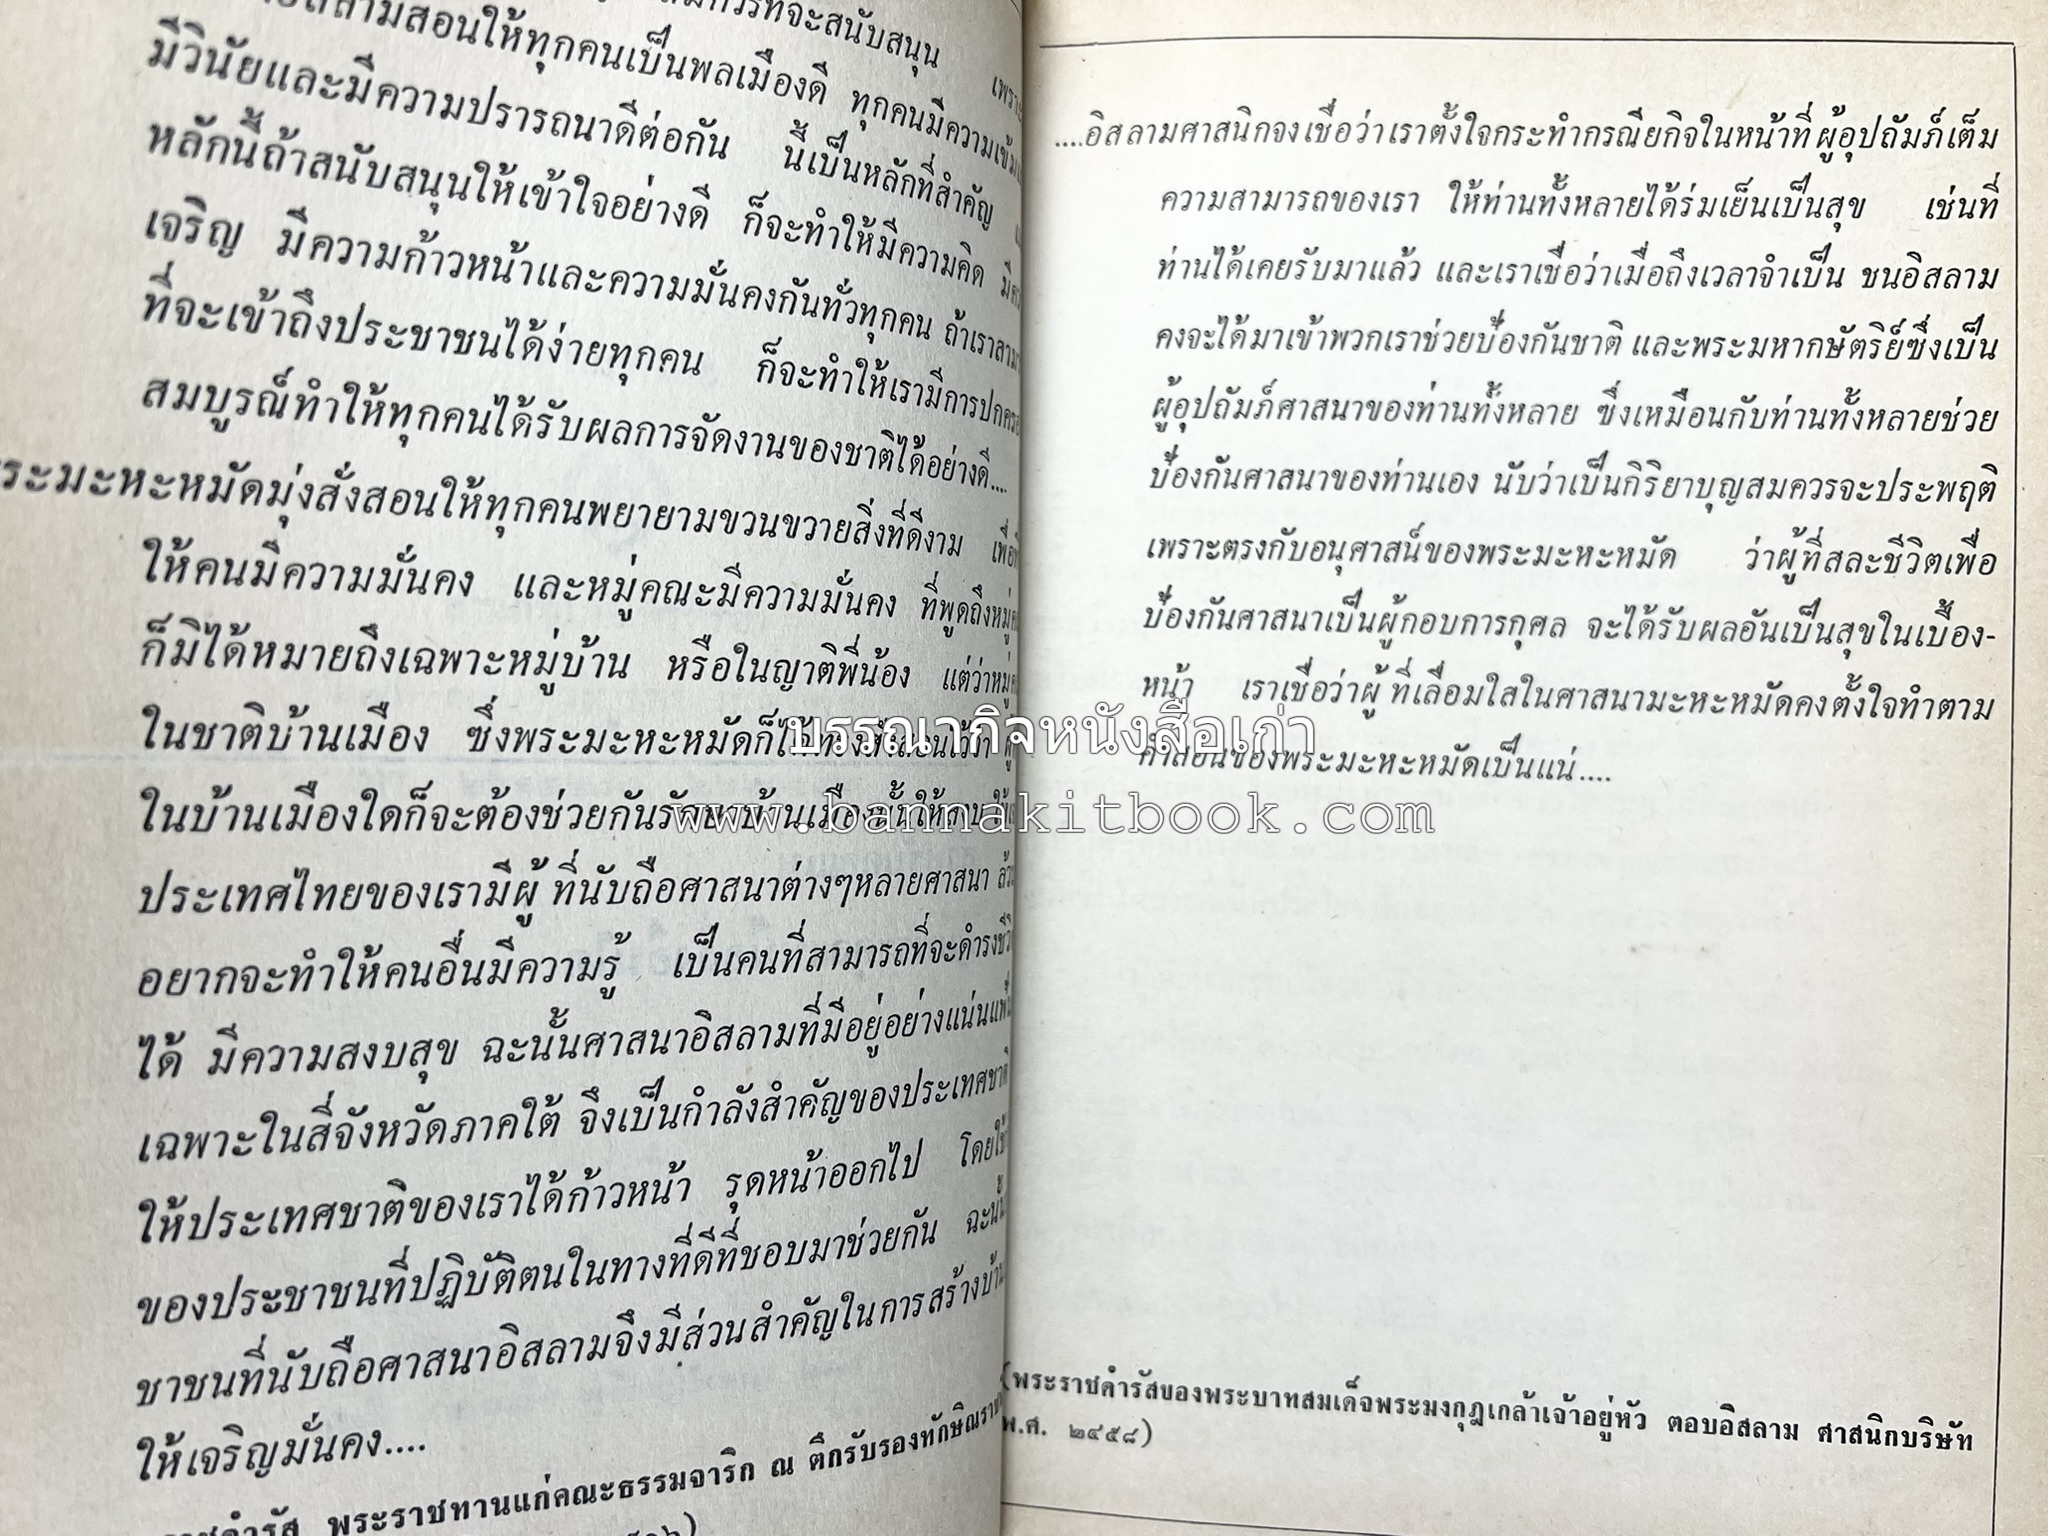 สมควรที่จะสนับสนุน เพราะ
อิสลามสอนให้ทุกคนเป็นพลเมืองดี ทุกคนมีความเข้ม
มีวินัยและมีความปรารถนาดีต่อกัน นี้เป็นหลักที่สำคัญ
หลักนี้ถ้าสนับสนุนให้เข้าใจอย่างดี ก็จะทำให้มีความคิด
เจริญ มีความก้าวหน้าและความมั่นคงกันทั่วทุกคน ถ้าเรา
ที่จะเข้าถึงประชาชนได้ง่ายทุกคน ก็จะทำให้เรามีการ
สมบูรณ์ทำให้ทุกคนได้รับผลการจัดงานของชาติได้อย่างดี....
ระมะหะหมัดมุ่งสั่งสอนให้ทุกคนพยายามขวนขวายสิ่งที่ดีงาม
ให้คนมีความมั่นคง และหมู่คณะมีความมั่นคง ที่พูดถึงหมู่
ก็มิได้หมายถึงเฉพาะหมู่บ้าน หรือในญาติพี่น้อง แต่ว่าหมู่
ในชาติบ้านเมือง ซึ่งพระมะหะหมัดก็ได้
ในบ้านเมืองใดก็จะต้องช่วยกันรักษาบ้านเมืองนั้นให้
ประเทศไทยของเรามีผู้ที่นับถือศาสนาต่างๆหลายศาสนา
อยากจะทำให้คนอื่นมีความรู้ เป็นคนที่สามารถที่จะดำรง
ได้ มีความสงบสุข ฉะนั้นศาสนาอิสลามที่มีอยู่อย่าง
เฉพาะในสี่จังหวัดภาคใต้ จึงเป็นกำลังสำคัญของประเทศชาติ
ให้ประเทศชาติของเราได้ก้าวหน้า รุดหน้าออกไป โดย
ของประชาชนที่ปฏิบัติตนในทางที่ดีที่ชอบมาช่วยกัน
ชาชนที่นับถือศาสนาอิสลามจึงมีส่วนสำคัญในการสร้าง
ให้เจริญมั่นคง....
ราชดำรัส พระราชทานแก่คณะธรรมจาริก ณ ตึกรับรอง
....อิสลามศาสนิกจงเชื่อว่าเราตั้งใจกระทำกรณียกิจในหน้าที่ผู้อุปถัมภ์เต็ม
ความสามารถของเรา ให้ท่านทั้งหลายได้ร่มเย็นเป็นสุข เช่นที่
ท่านได้เคยรับมาแล้ว และเราเชื่อว่าเมื่อถึงเวลาจำเป็น ชนอิสลาม
คงจะได้มาเข้าพวกเราช่วยป้องกันชาติ และพระมหากษัตริย์ซึ่งเป็น
ผู้อุปถัมภ์ศาสนาของท่านทั้งหลาย ซึ่งเหมือนกับท่านทั้งหลายช่วย
ป้องกันศาสนาของท่านเอง นับว่าเป็นกิริยาบุญสมควรจะประพฤติ
เพราะตรงกับอนุศาสน์ของพระมะหะหมัด ว่าผู้ที่สละชีวิตเพื่อ
ป้องกันศาสนาเป็นผู้กอบการกุศล จะได้รับผลอันเป็นสุขในเบื้อง-
หน้า เราเชื่อว่าผู้ที่เลื่อมใสในศาสนามะหะหมัดคงตั้งใจทำตาม
คำสอนของพระมะหะหมัดเป็นแน่....
(พระราชดำรัสของพระบาทสมเด็จพระมงกุฎเกล้าเจ้าอยู่หัว ตอบอิสลาม ศาสนิกบริษัท
พ.ศ. ๒๔๕๘)
บรรณากิจหนังสือเก่า
www.bannakitbook.com